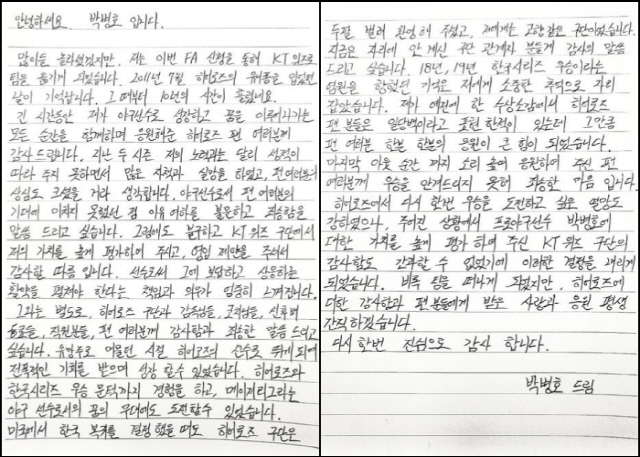 안녕하세요 박병호 입니다.
많이들 놀라셨겠지만, 저는 이번 FA 신청을 통해 KT위즈로
팀을 옮기게 되었습니다. 2011년 7월 히어로즈의 유니폼을 입었던
날이 기억납니다. 그 때부터 10년의 시간이 흘렀네요.
긴 시간동안 제가 야구선수로 성장하고 꿈을 이루어가는
모든 순간을 함께하며 응원해준 히어로즈 팬 여러분께
감사드립니다. 지난 두 시즌 저의 노력과는 달리 성적이
따라 주지 못하면서 많은 자책과 실망을 하였고, 팬여러분의
상심도 크셨을 거라 생각합니다. 야구선수로서 팬 여러분의
기대에 미치지 못했던 점 이유 여하를 불문하고 죄송함을
말씀 드리고 싶습니다. 그럼에도 불구하고 KT위즈 구단에서
저의 가치를 높게 평가하여 주시고, 영입 제안을 주셔서
감사할 따름 입니다. 선수로서 그에 보답하고 상응하는
활약을 펼쳐야 한다는 책임과 의무가 엄중히 느껴집니다.
그와는 별도로, 히어로즈 구단과 감독님들, 코치님들, 선후배
동료들, 직원분들, 팬 여러분께 감사함과 죄송한 말씀 드리고
싶습니다. 유망주로 머물던 시절 히어로즈의 선수로 뛰게 되며
전폭적인 기회를 받으며 성장 할 수 있었습니다. 히어로즈와
한국시리즈 우승 문턱까지 경험을 하고, 메이저리그라는
야구 선수로서의 꿈의 무대에도 도전할수 있었습니다.
미국에서 한국 복귀를 결정했을 때도 히어로즈 구단은
두팔 벌려 환영해 주셨고, 저에게는 고향같은 구단이었습니다.
지금은 자리에 안 계신 구단 관계자 분들께 감사의 말씀
드리고 싶습니다. 18년, 19년 한국시리즈 우승이라는
염원을 함께했던 기억은 저에게 소중한 추억으로 자리
잡았습니다. 제가 예전에 한 수상소감에서 히어로즈
팬 분들은 일당백이라고 표현 한적이 있는데 그만큼
팬 여러분 한분 한분의 응원이 큰 힘이 되었습니다.
마지막 아웃 순간 까지 소리 높여 응원하여 주신 팬
여러분께 우승을 안겨드리지 못해 죄송한 마음 입니다.
히어로즈에서 다시 한번 우승을 도전하고 싶은 열망도
강하였으나, 주어진 상황에서 프로야구선수 박병호에
대한 가치를 높게 평가 하여 주신 KT위즈 구단의
감사함도 간과할 수 없었기에 이러한 결정을 내리게
되었습니다. 비록 팀을 떠나게 되었지만, 히어로즈에
대한 감사함과 팬 분들에게 받은 사랑과 응원 평생
간직하겠습니다.
다시 한번 진심으로 감사 합니다.
박병호 드림